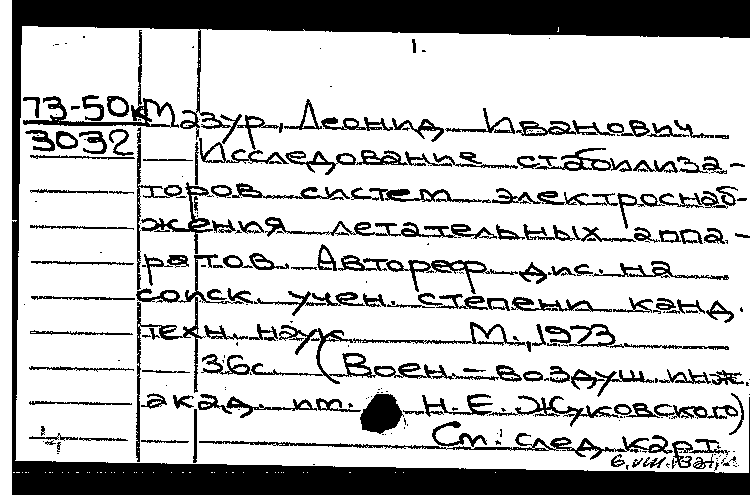 1.
73-50к Мазур, Леонид Иванович
3032 Исследование стабилиза-
торов систем электроснаб-
жения летательных аппа-
ратов. Автореф. дис. на
соиск. учен. степени канд.
техн. наук М., 1973.
36с. (Воен.-воздуш. инж.
акад. им. Н.Е. Жуковского)
См. след. карт.